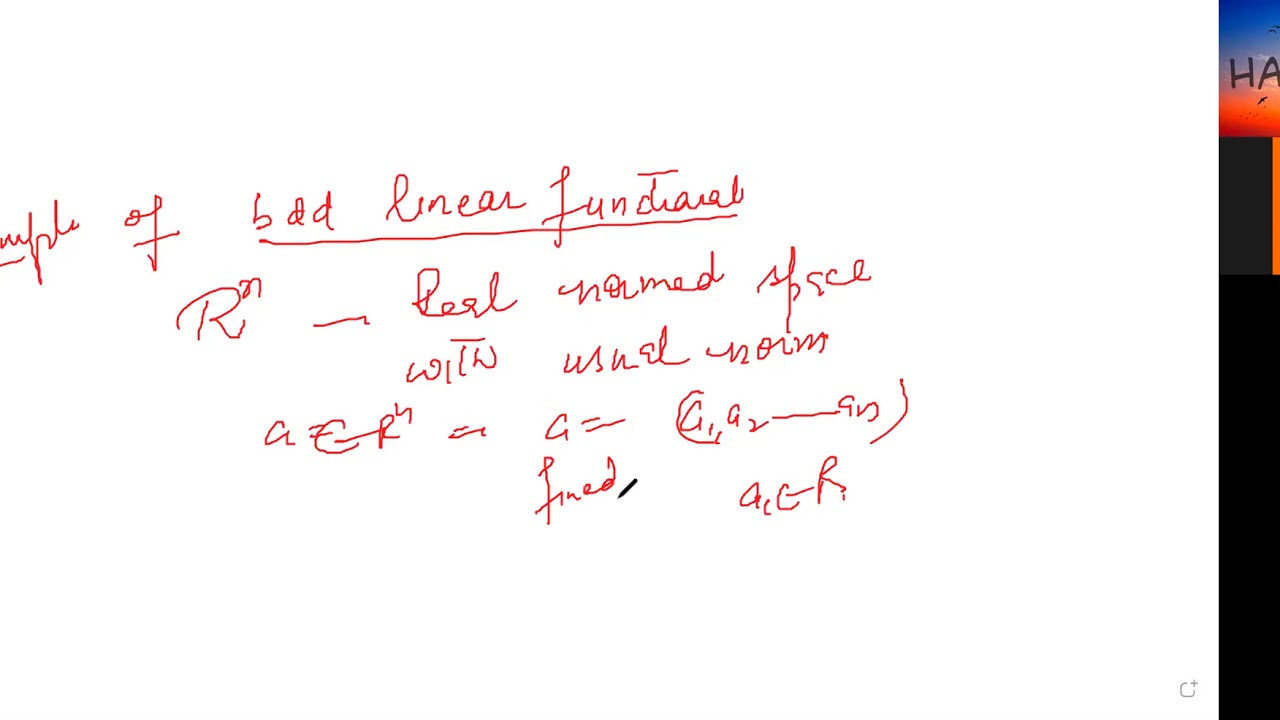 mple of bdd linear functional
Rⁿ — Real normed space
with usual norm
a ∈ Rⁿ = a = (a₁, a₂ — aₙ)
fixed aᵢ ∈ R.
HA